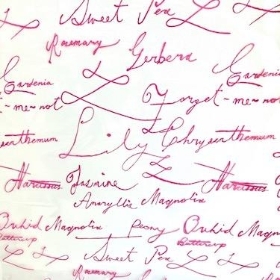 Sweet Pea
Rosemary
Gerbera
Gardenia
Gardenia
-me-not
Forget-me-no
Lily
Chrysanthemum
anthemum
Narcissus
Jasmine
Narcissus
Amaryllis Magnolia
Orchid Magnolia
Peony
Orchid Magno
Buttercup
Buttercup
Sweet Pea
Rosemary